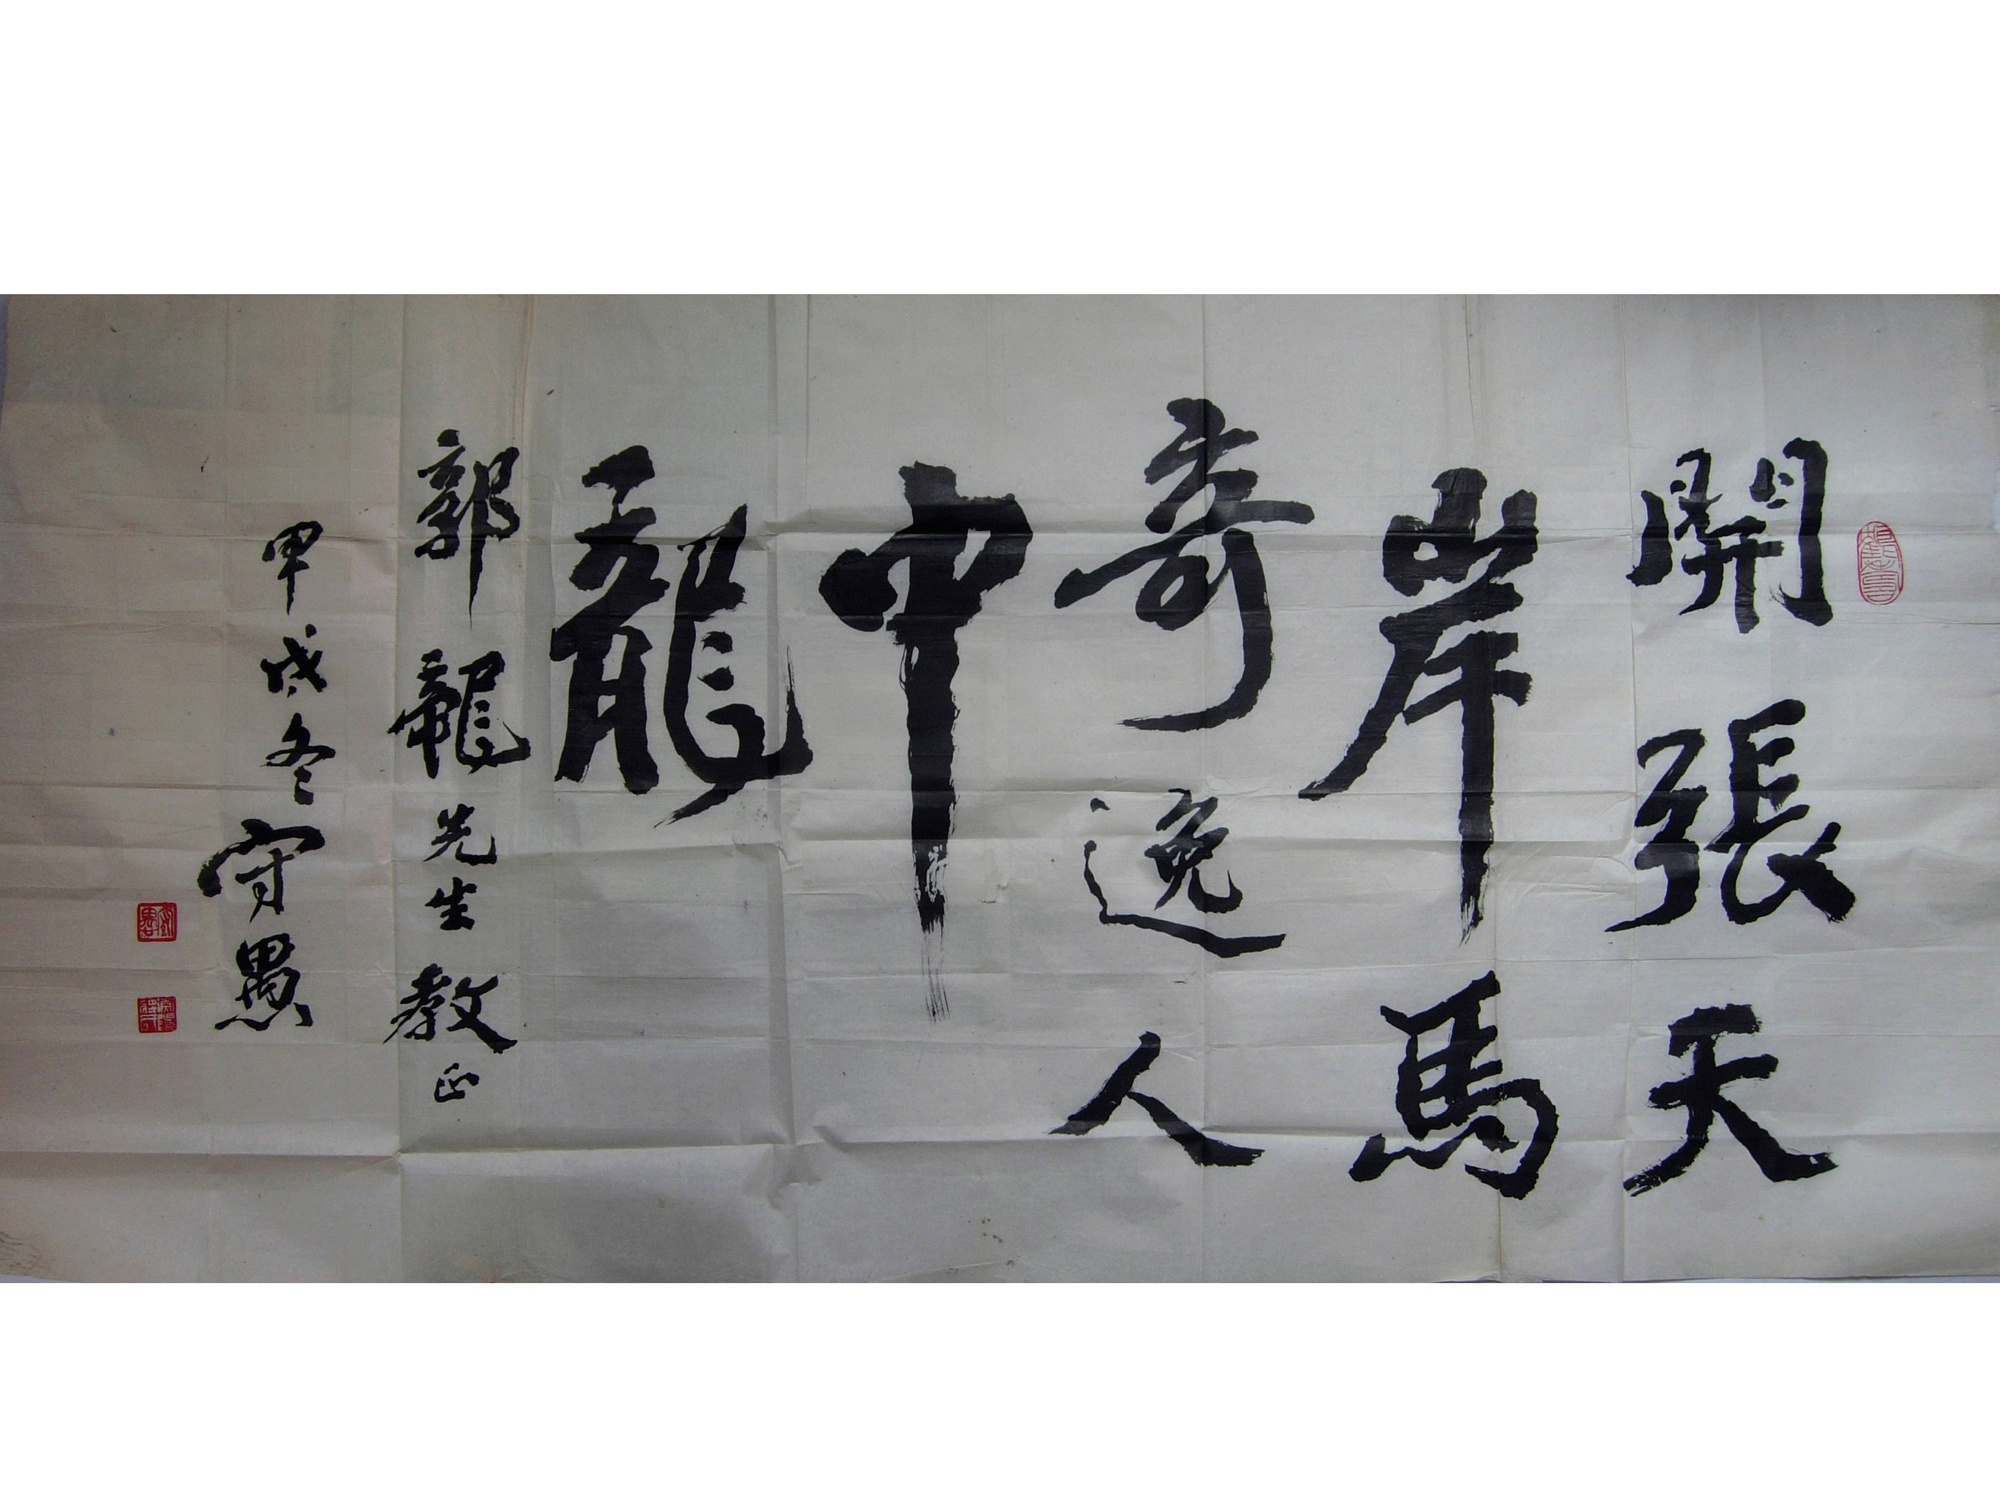 開張天
岸馬
奇逸人
中
龍
郭龍先生教正
甲戌冬守愚